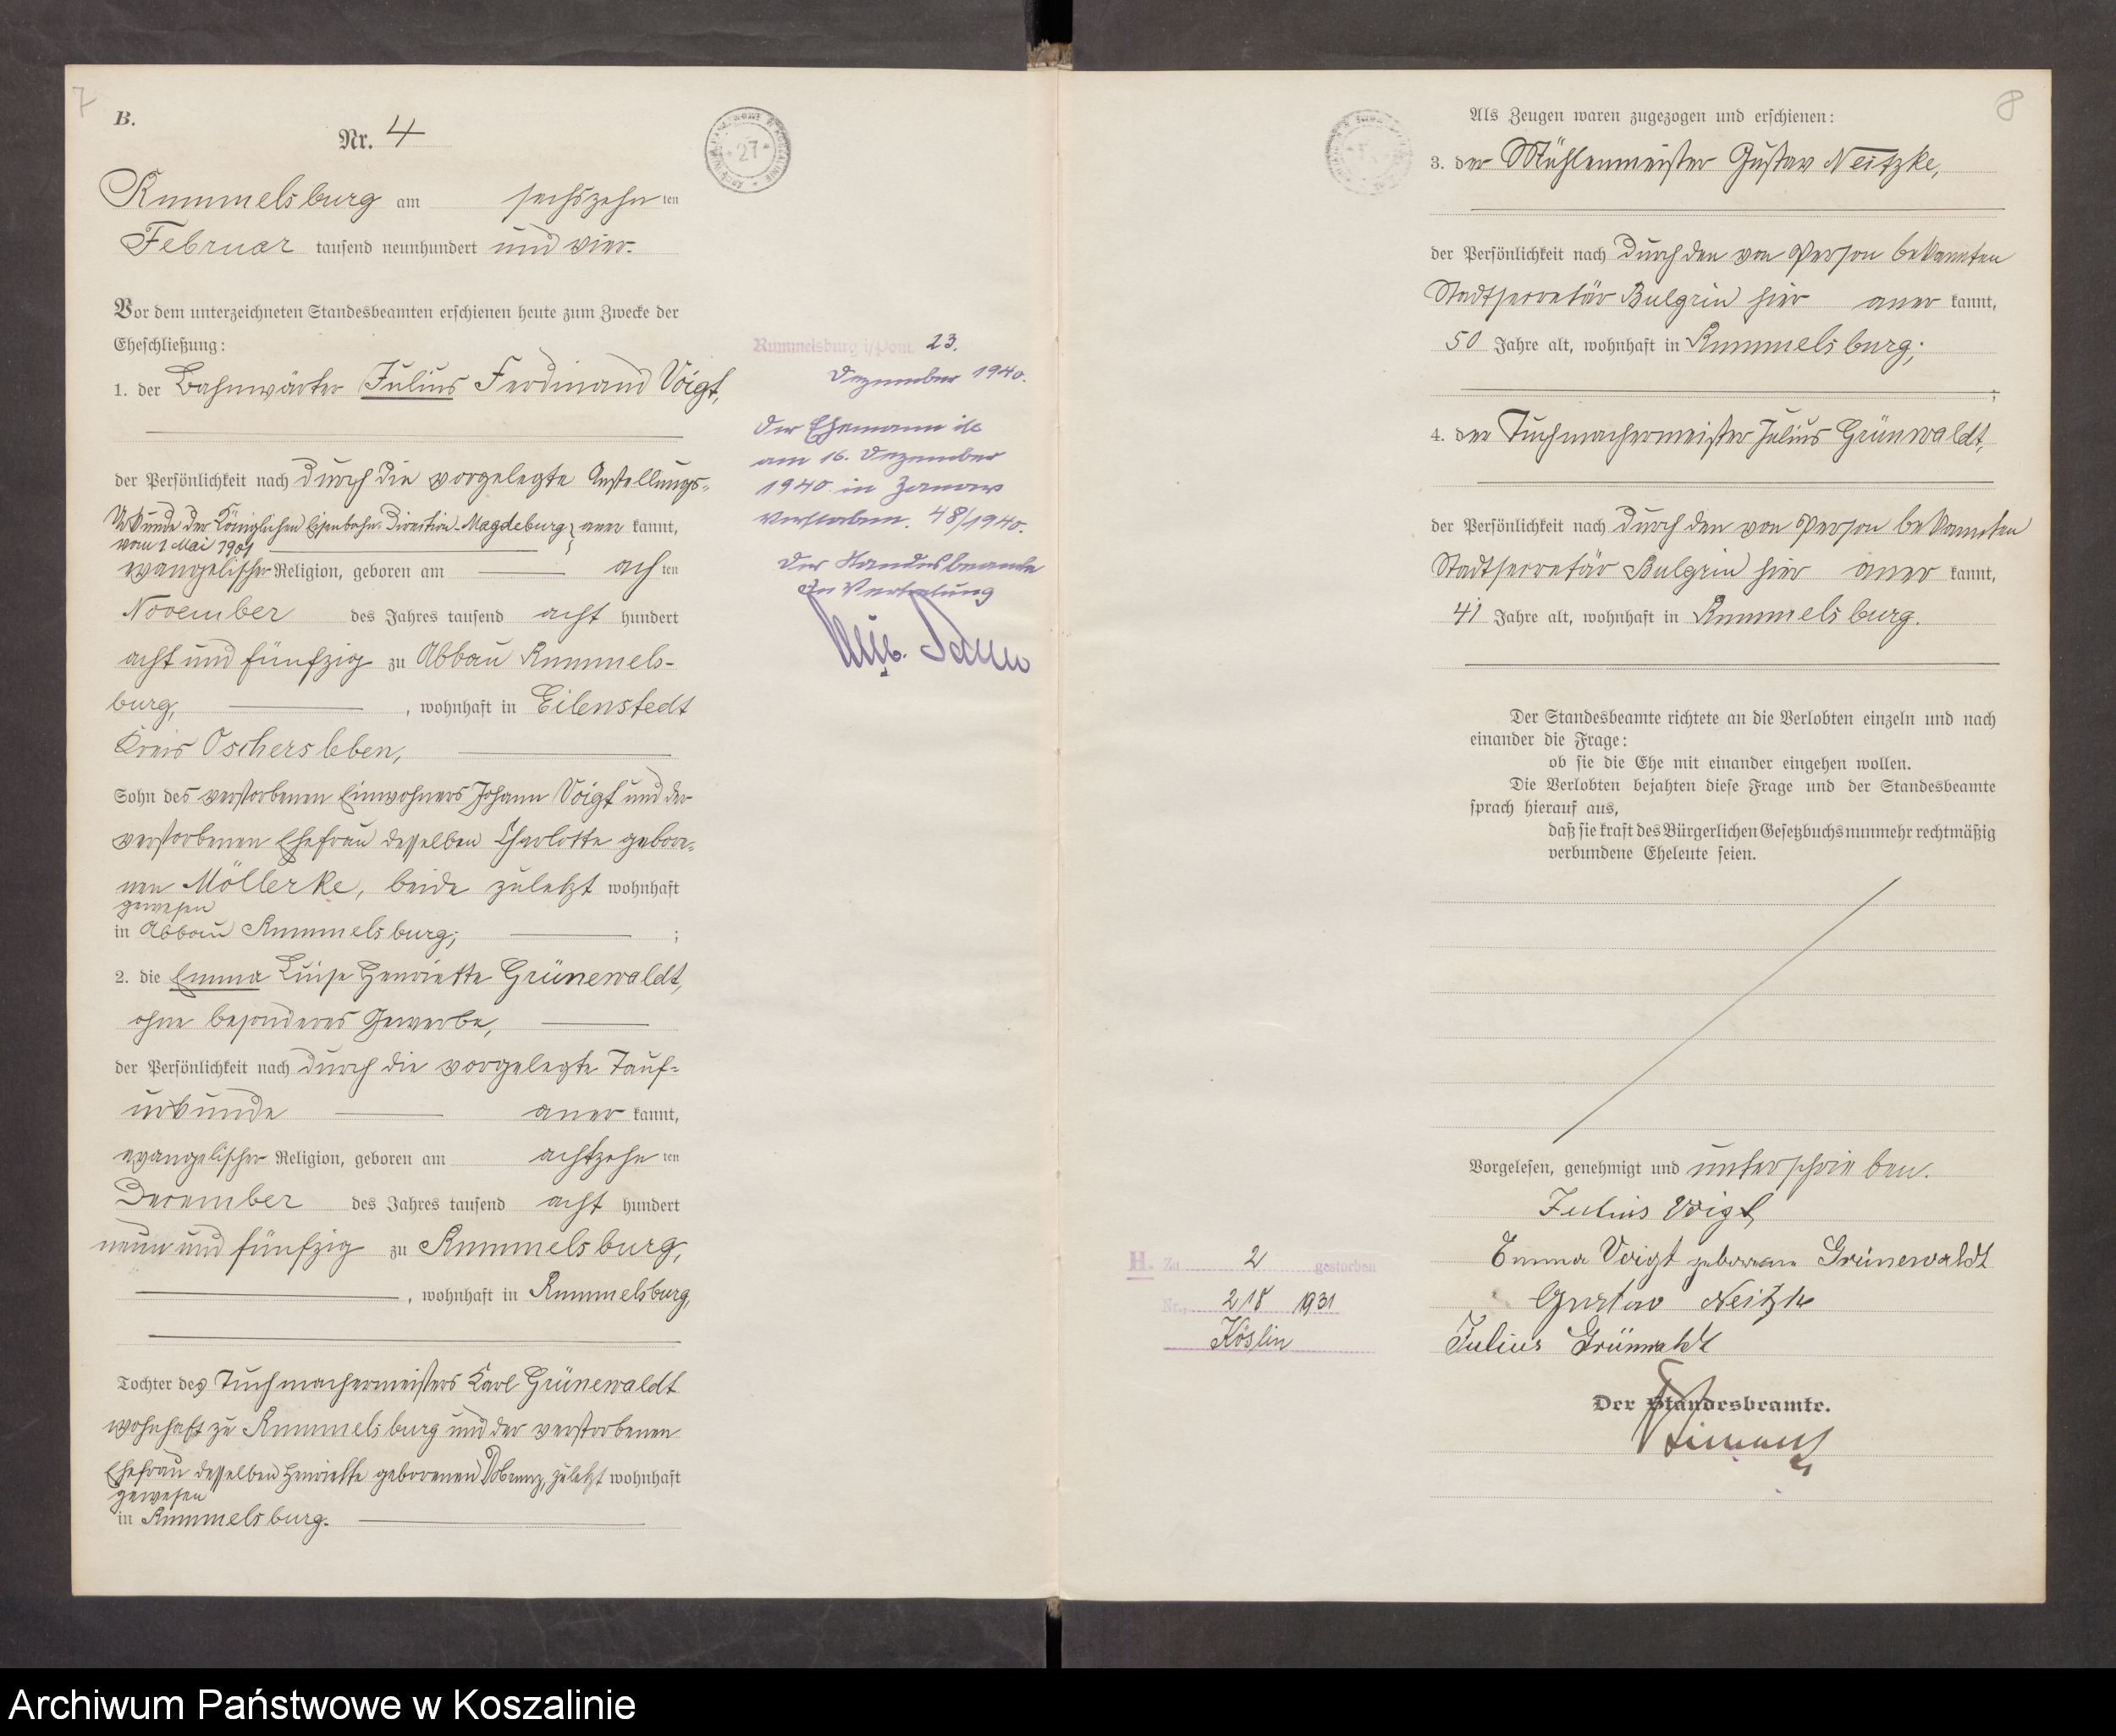 7
B.
Nr. 4
Rummelsburg am sechszehn ten
Februar tausend neunhundert und vier.
Vor dem unterzeichneten Standesbeamten erschienen heute zum Zwecke der
Eheschließung:
1. der Bahnwärter Julius Ferdinand Voigt,
der Persönlichkeit nach durch die vorgelegte Anstellungs-
Urkunde der Königlichen Eisenbahn-Direction-Magdeburg aner kannt,
vom 1 Mai 1901
evangelischer Religion, geboren am ach ten
November des Jahres tausend acht hundert
acht und fünfzig zu Abbau Rummels-
burg, , wohnhaft in Eilenstedt
Kreis Oschersleben,
Sohn des verstorbenen Einwohners Johann Voigt und der
verstorbenen Ehefrau desselben Charlotte gebore-
nen Möllerke, beide zuletzt wohnhaft
gewesen
in Abbau Rummelsburg; ;
2. die Emma Luise Henriette Grünewaldt,
ohne besonderes Gewerbe,
der Persönlichkeit nach durch die vorgelegte Tauf-
urkunde aner kannt,
evangelischer Religion, geboren am achtzehn ten
December des Jahres tausend acht hundert
neun und fünfzig zu Rummelsburg,
, wohnhaft in Rummelsburg,
Tochter des Tuchmachermeisters Karl Grünewaldt
wohnhaft zu Rummelsburg und der verstorbenen
Ehefrau desselben Henriette geborenen zuletzt wohnhaft
gewesen
in Rummelsburg.
27
Rummelsburg i/Pom. 23.
Dezember 1940.
Der Ehemann ist
am 16. Dezember
1940 in Zanow
verstorben. 48/1940.
Der Standesbeamte
In Vertretung
8
Als Zeugen waren zugezogen und erschienen:
3. der Mühlenmeister Gustav Neitzke,
der Persönlichkeit nach durch den von Person bekannten
Stadtsecretär Bulgrin hier aner kannt,
50 Jahre alt, wohnhaft in Rummelsburg;
;
4. der Tuchmachermeister Julius Grünwaldt,
der Persönlichkeit nach durch den von Person bekannten
Stadtsecretär Bulgrin hier aner kannt,
41 Jahre alt, wohnhaft in Rummelsburg.
Der Standesbeamte richtete an die Verlobten einzeln und nach
einander die Frage:
ob sie die Ehe mit einander eingehen wollen.
Die Verlobten bejahten diese Frage und der Standesbeamte
sprach hierauf aus,
daß sie kraft des Bürgerlichen Gesetzbuchs nunmehr rechtmäßig
verbundene Eheleute seien.
Vorgelesen, genehmigt und unterschrieben.
Julius Voigt
Emma Voigt geborene Grünewaldt
Gustav Neitzke
Julius Grünwaldt
Der Standesbeamte.
H. Zu 2 gestorben
Nr. 218 1931
Köslin
Archiwum Państwowe w Koszalinie